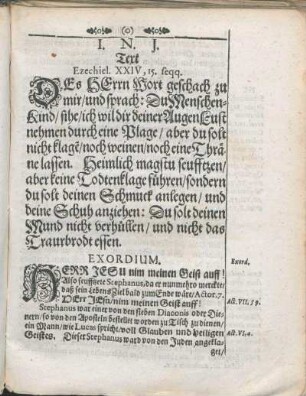 (o)
I. N. J.
Text
Ezechiel. XXIV, 15. seqq.
DEs HErrn Wort geschach zu
mir/ und sprach: Du Menschen-
Kind/ sihe/ ich wil dir deiner Augen Lust
nehmen durch eine Plage/ aber du solt
nicht klagẽ/ noch weinen/ noch eine Thrä-
ne lassen. Heimlich magstu seufftzen/
aber keine Todtenklage führen/ sondern
du solt deinen Schmuck anlegen/ und
deine Schuh anziehen: Du solt deinen
Mund nicht verhüllen/ und nicht das
Traurbrodt essen.
EXORDIUM.
Exord.
HERR JESU nim meinen Geist auff!
Also seufftzete Stephanus, da er nunmehro merckte/
daß sein Lebens Ziel bald zum Ende wäre/ Actor. 7.
HErr JEsu/ nim meinen Geist auff!
Act. VII. 59.
Stephanus war einer von den sieben Diaconis oder Die-
nern/ so von den Aposteln bestellet worden zu Tisch zu dienen/
ein Mann/ wie Lucas spricht/ voll Glauben und heiligen
Act. VI. 6.
Geistes. Dieser Stephanus ward von den Juden angekla-
get/